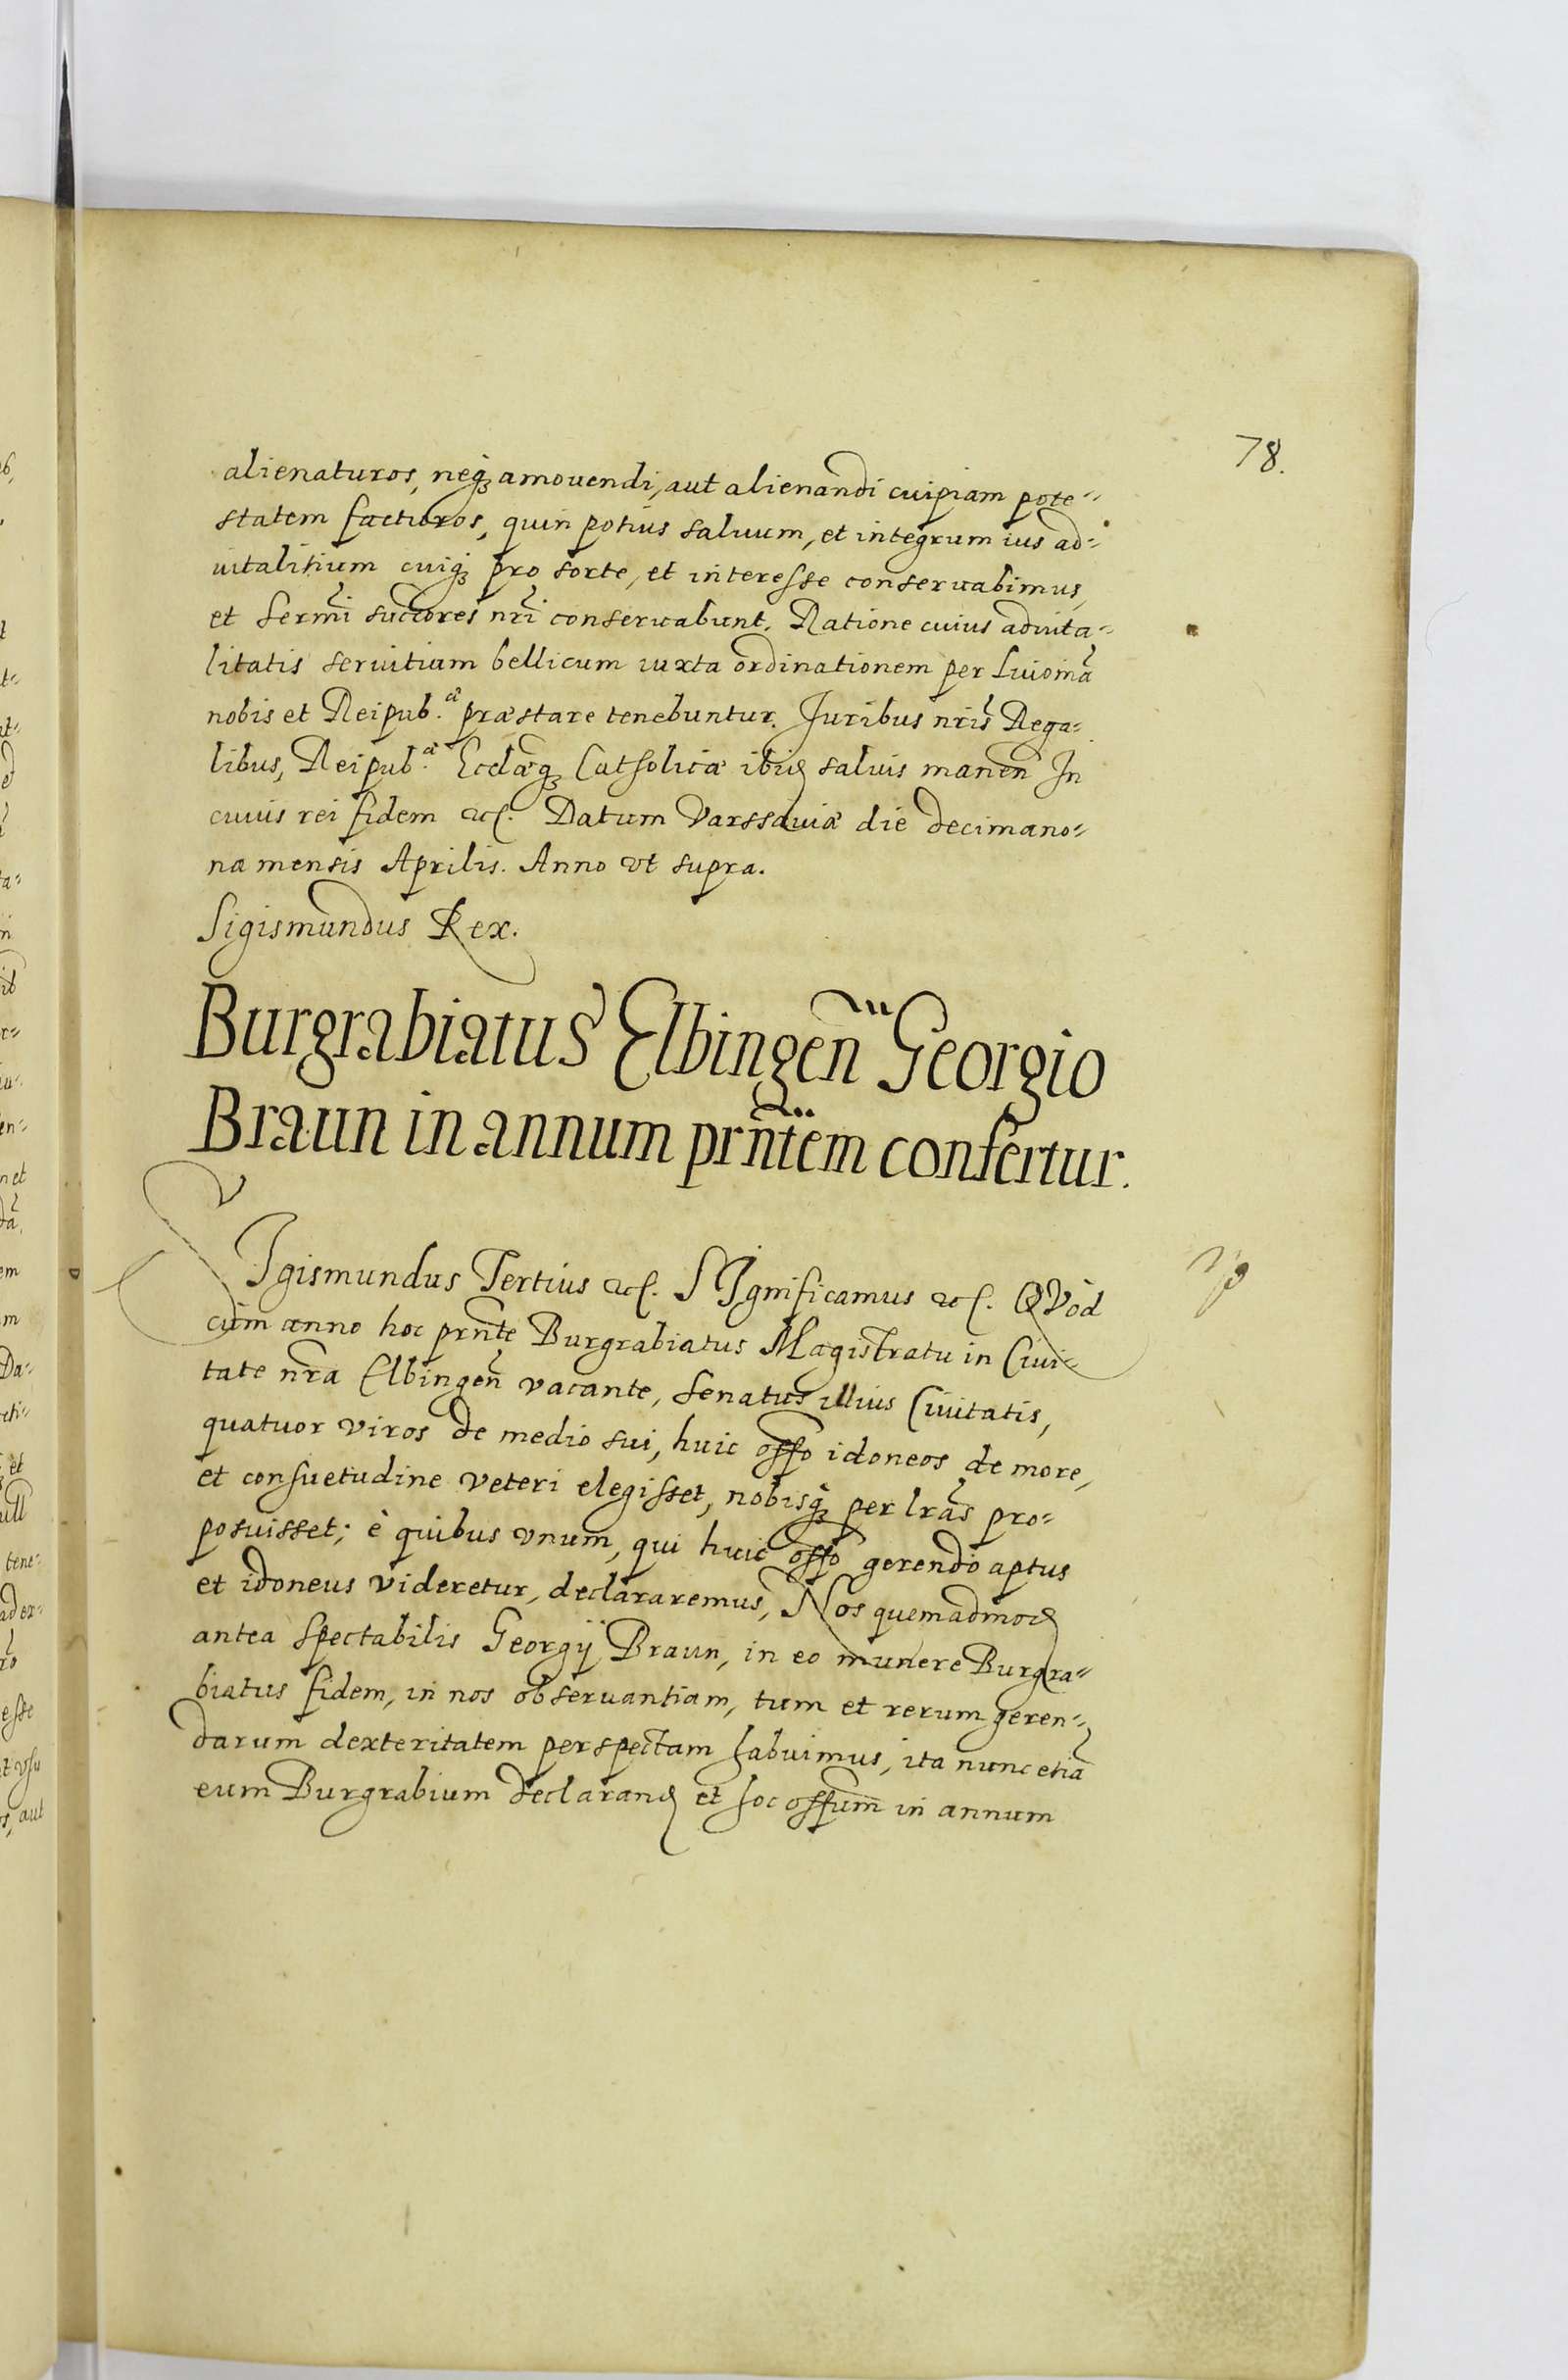 78.
alienaturos, neq₃ amouendi, aut alienandi cuipiam pote⸗
statem facturos, quin potius saluum, et integrum ius ad⸗
uitalitium cuiq₃ pro sorte, et interesse conseruabimus,
et Sermi succores nri conseruabunt. Ratione cuius aduita⸗
litatis seruitium bellicum iuxta ordinationem per Liuoniã
nobis et Reipub.ᶜᵃ præstare tenebuntur. Juribus nris Rega⸗
libus, Reipub.ᶜᵃ Ecclæq₃ Catholicæ ibid saluis manen̄ In
cuius rei fidem etc. Datum Varssauiæ die decimano⸗
na mensis Aprilis. Anno vt supra.
Sigismundus Rex.
Burgrabiatus Elbingen̄ Georgio
Braun in annum prñtem confertur.
SIgismundus Tertius etc. SIgnificamus etc. QVòd
cùm anno hoc prñte Burgrabiatus Magistratu in Ciui⸗
tate nra Elbingen̄ vacante, Senatus illius Ciuitatis,
quatuor viros de medio sui, huic offo idoneos de more,
et consuetudine veteri elegisset, nobisq₃ per lras pro⸗
posuisset; è quibus vnum, qui huic offo gerendo aptus
et idoneus videretur, declararemus, Nos quemadmod
antea Spectabilis Georgij Braun, in eo munere Burgra⸗
biatus fidem, in nos obseruantiam, tum et rerum geren⸗
darum dexteritatem perspectam habuimus, ita nunc etiã
eum Burgrabium declarand et hoc offum in annum